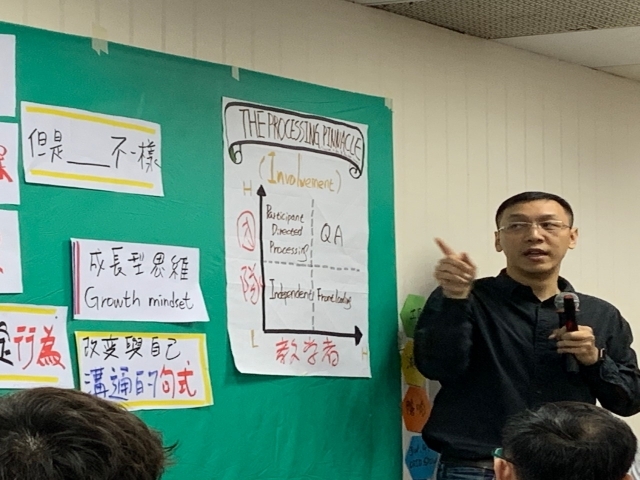 但是___不一樣
成長型思維
Growth mindset
行為
改变與自己
溝通的句式
THE PROCESSING PINNACLE
(Involvement)
H
團隊
Participant
Directed
Processing
QA
Independent
Frontloading
L
教学者
H